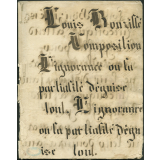 Louis Bouzille
Composition
L'ignorance ou la
partialité déguise
tout. L'ignorance
ou la partialité dégu
ise tout